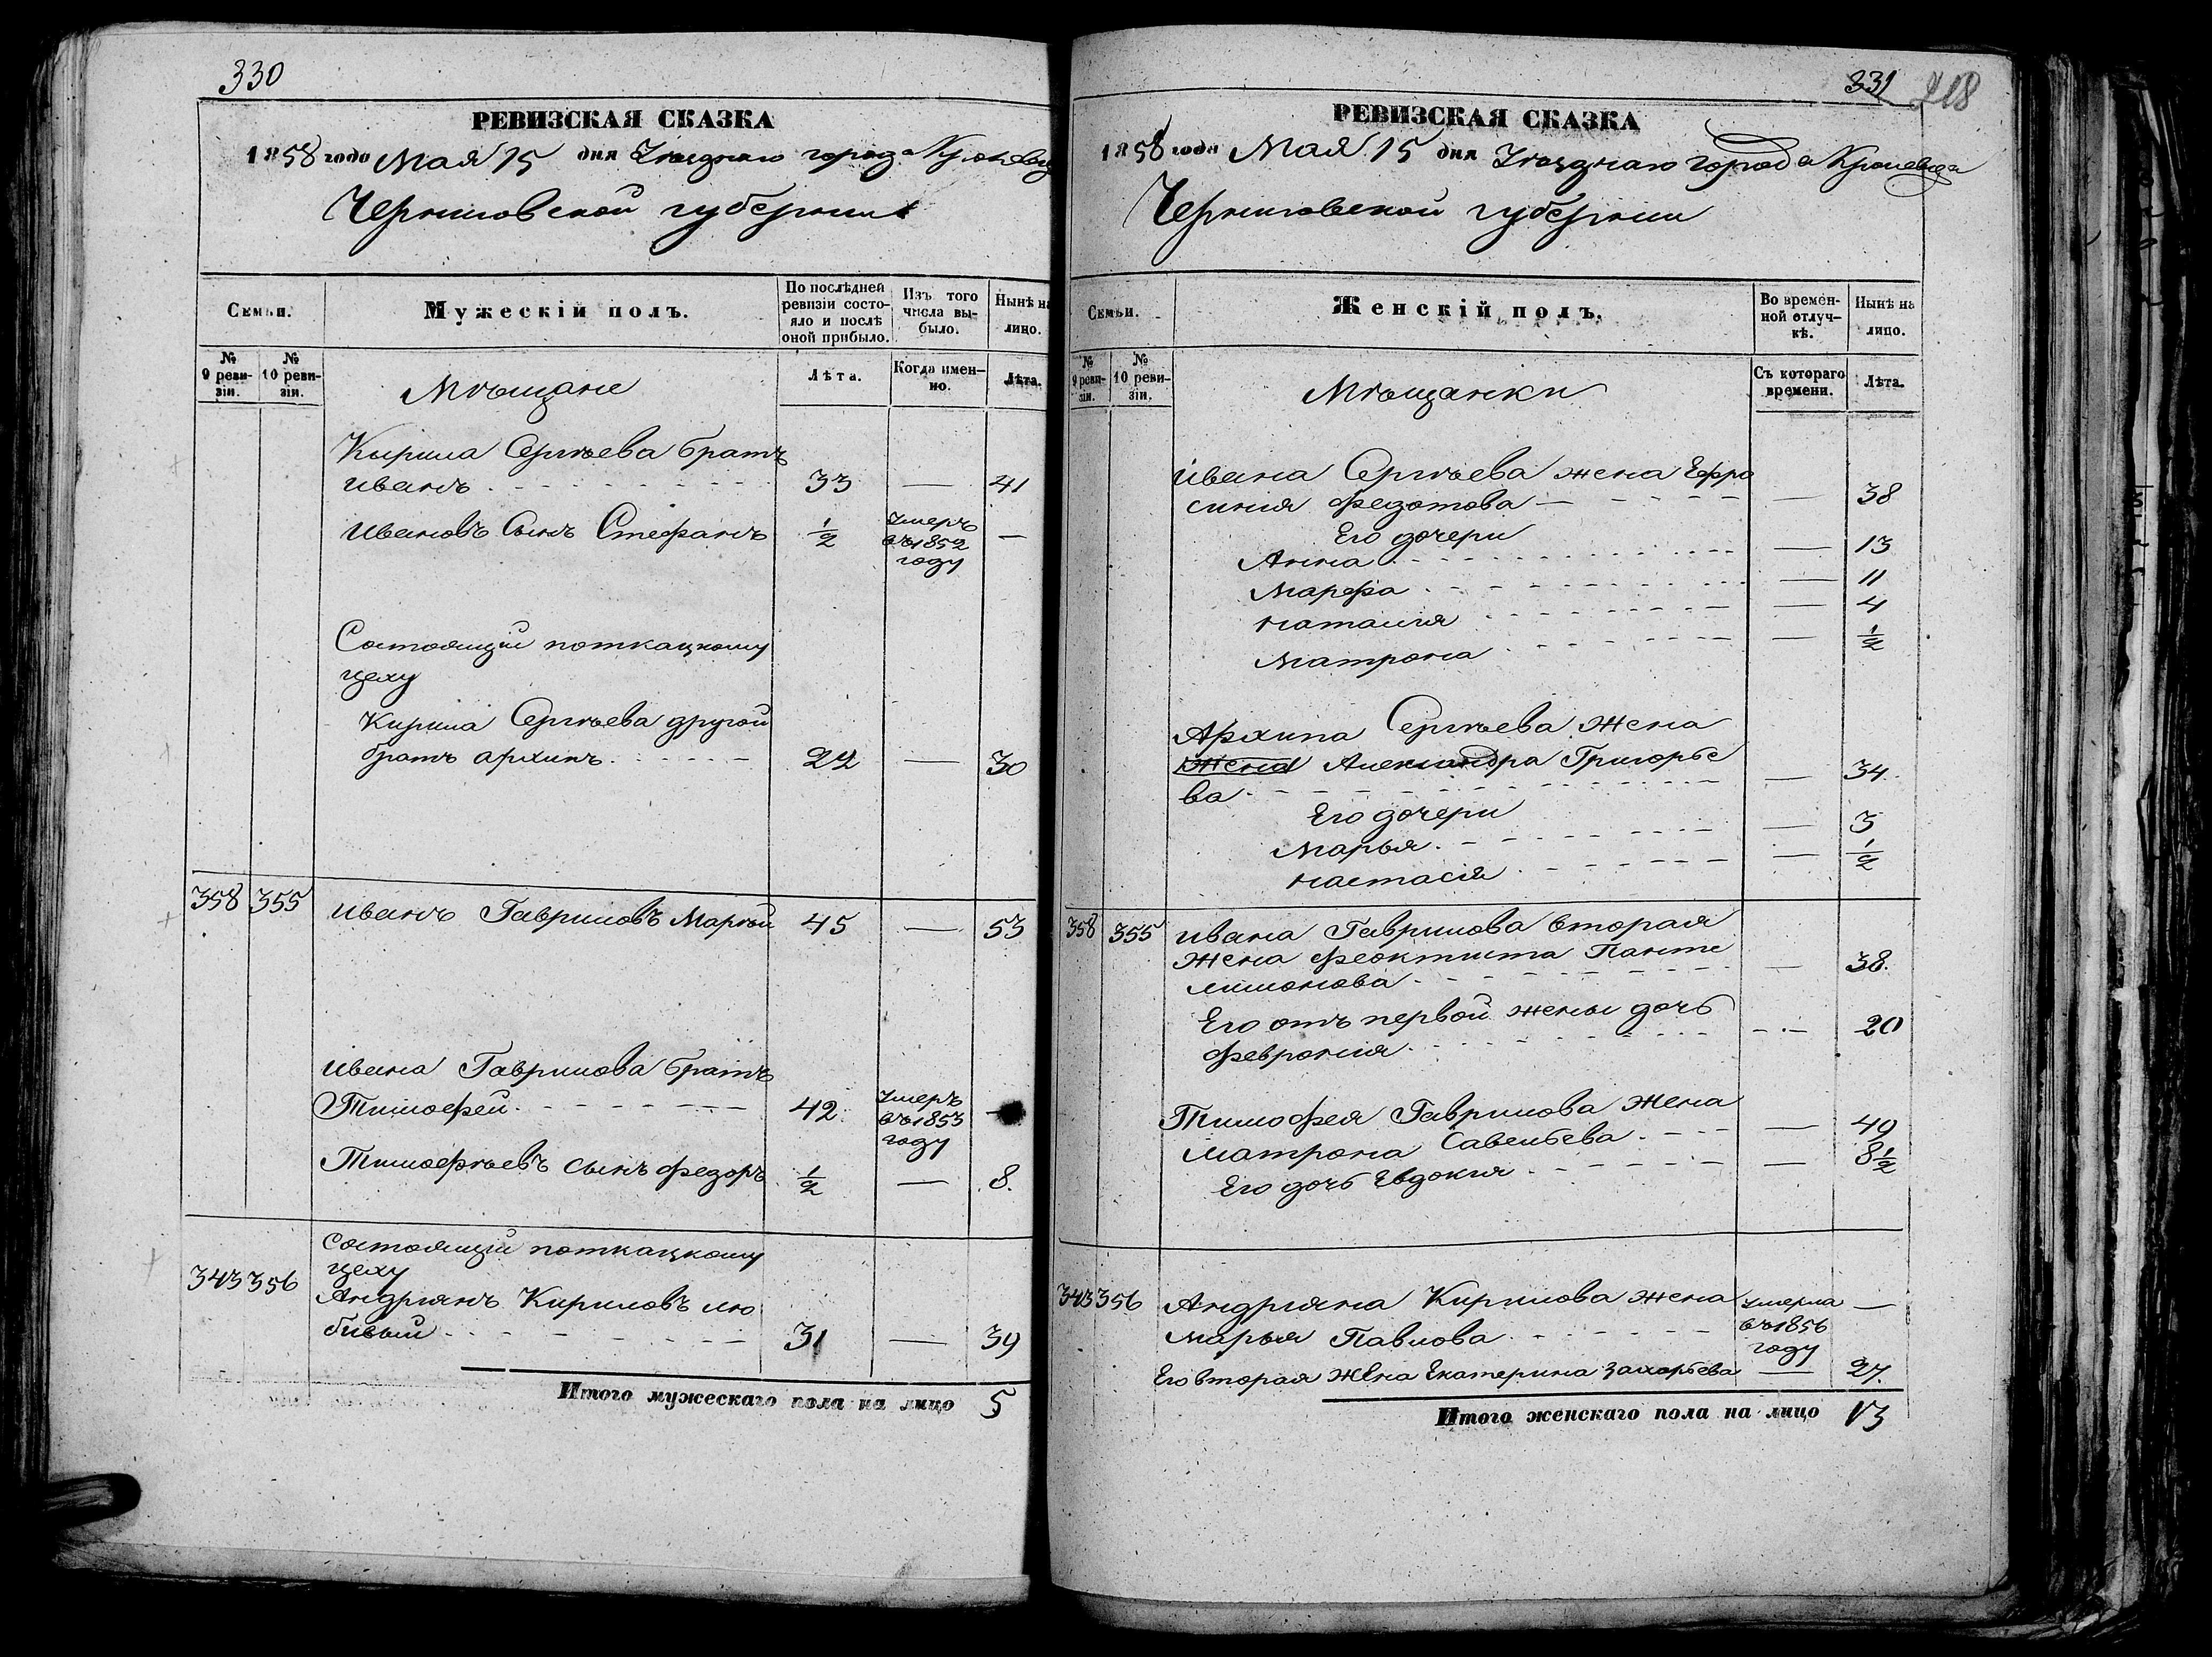 330
РЕВИЗСКАЯ СКАЗКА
1858 года Мая 15 дня Уѣзднаго города Кролевца
Черниговской губерніи
Семьи.
Мужескій полъ.
По послѣдней ревизіи состояло и послѣ оной прибыло.
Изъ того числа выбыло.
Нынѣ на лицо.
№ 9 ревизіи.
№ 10 ревизіи.
Мѣщане
Лѣта.
Когда именно.
Лѣта.
Кырила Сергѣева братъ
иванъ 33 — 41
ивановъ Сынъ Стефанъ ½ Умеръ въ 1852 году —
Состоящій поткацкому
цеху
Кирила Сергѣева другой
братъ архипъ 22 — 30
358 355 иванъ Гавриловъ Маргой 45 — 53
ивана Гаврилова братъ
Тимофей 42 Умеръ въ 1853 году —
Тимофѣевъ сынъ федоръ ½ — 8.
состоящій поткацкому
цеху
343 356 Андріянъ Кириловъ лю
бивый 31 — 39
Итого мужескаго пола на лицо 5
331
718
РЕВИЗСКАЯ СКАЗКА
1858 года Мая 15 дня Уѣзднаго города Кролевца
Черниговской губерніи
Семьи.
Женскій полъ.
Во временной отлучкѣ.
Нынѣ на лицо.
№ 9 ревизіи.
№ 10 ревизіи.
Мѣщанки
Съ котораго времени.
Лѣта.
ивана Сергѣева жена Ефро
синія федотова — 38
Его дочери
Анна — 13
Марфа — 11
наталія — 4
Матрона — ½
Архипа Сергѣева Жена
жена Александра Григорье
ва — 34.
Его дочери
Марья — 3
настасія — ½
358 355 ивана Гаврилова вторая
жена феоктиста Панте
лимонова — 38.
Его отъ первой жены дочь
февронія — 20
Тимофея Гаврилова Жена
матрона Савельева — 49
Его дочь Евдокія — 8½
343 356 Андріяна Кирилова жена
марья Павлова Умерла въ 1856 году —
Его вторая жена Екатерина Захарьева — 27.
Итого женскаго пола на лицо 13